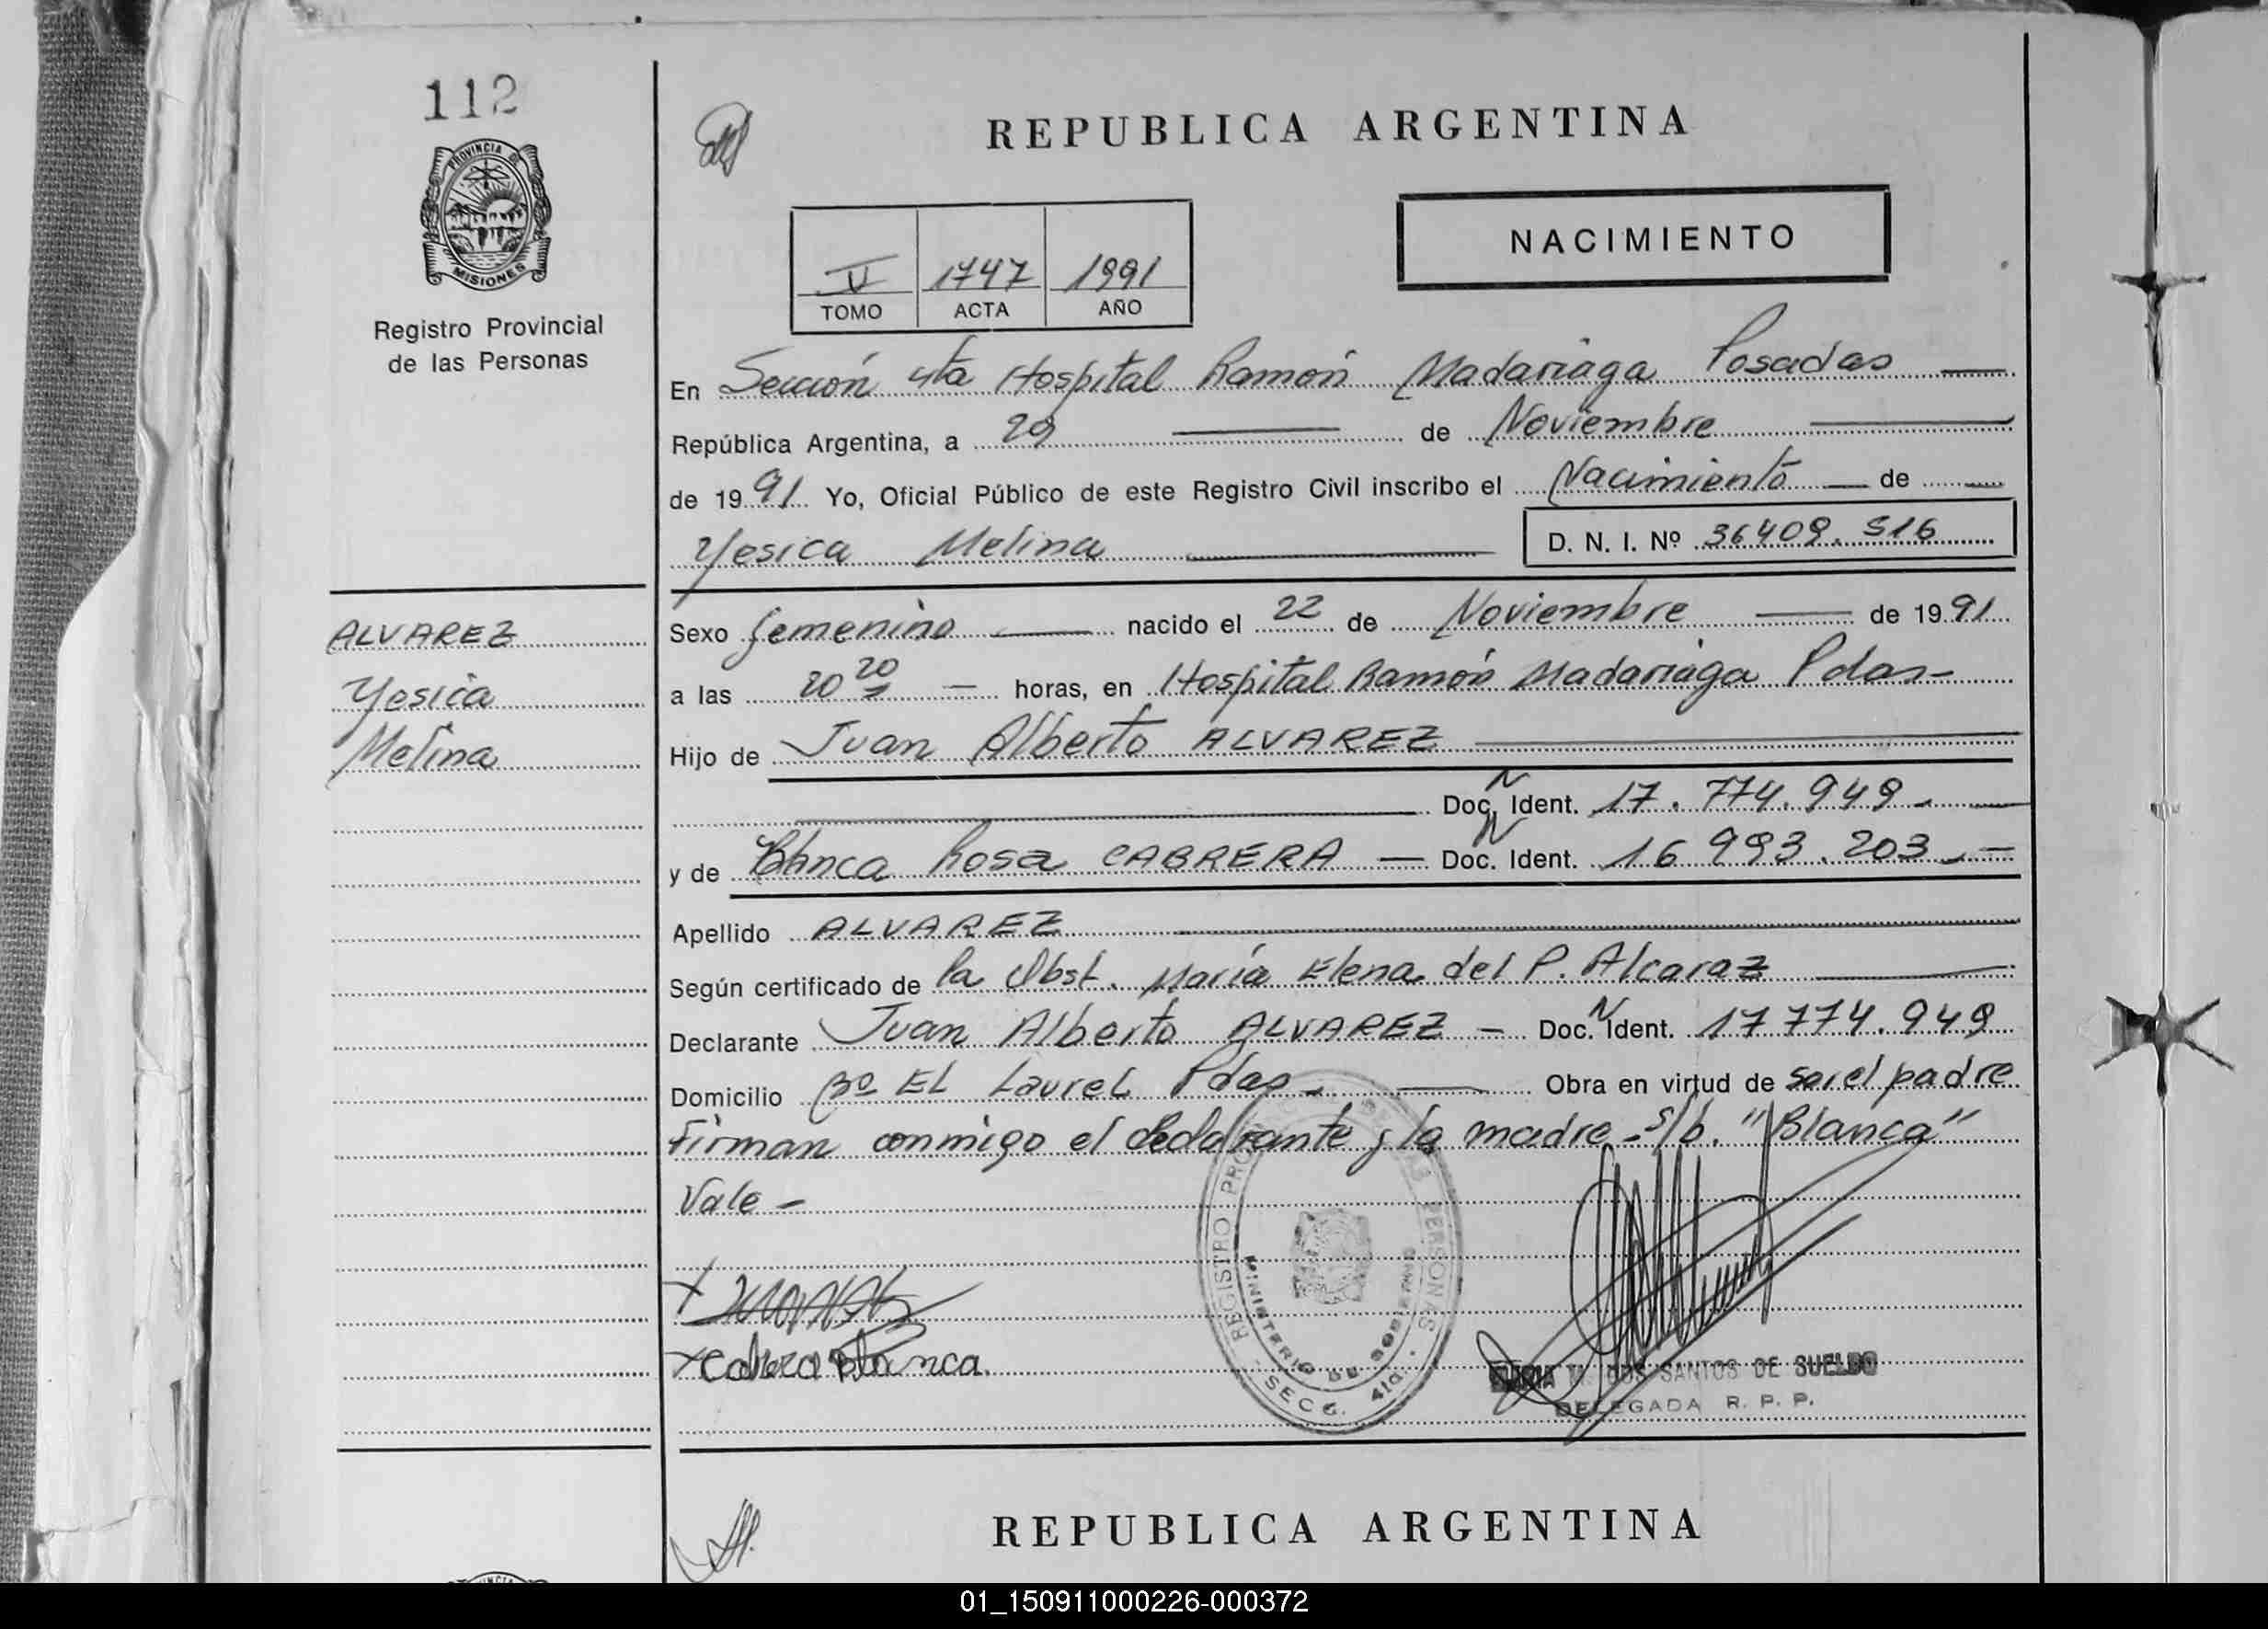 112
PROVINCIA DE
MISIONES
Registro Provincial
de las Personas
REPUBLICA ARGENTINA
NACIMIENTO
V 1747 1991
TOMO ACTA AÑO
En Sección 4ta Hospital Ramón Madariaga Posadas —
República Argentina, a 29 — de Noviembre —
de 1991 Yo, Oficial Público de este Registro Civil inscribo el Nacimiento — de —
Yesica Melina — D. N. I. Nº 36409.516
ALVAREZ
Yesica
Melina
Sexo femenino — nacido el 22 de Noviembre — de 1991
a las 20 20 — horas, en Hospital Ramón Madariaga Pdas-
Hijo de Juan Alberto ALVAREZ —
— Doc. N Ident. 17.774.949.-
y de Blanca Rosa CABRERA — Doc. N Ident. 16 993.203.-
Apellido ALVAREZ
Según certificado de la Obst. María Elena del P. Alcaraz —
Declarante Juan Alberto ALVAREZ — Doc. N Ident. 17 774.949
Domicilio Bº EL LaureL Pdas. — Obra en virtud de ser el padre
Firman conmigo el declarante y la madre.- s/b. "Blanca"
Vale -
x
x Cabrera Blanca.
REGISTRO PERSONAS
MINISTERIO DE GOBIERNO
SECC. 4ta.
DOS SANTOS DE SUELDO
DELEGADA R. P. P.
REPUBLICA ARGENTINA
01_150911000226-000372